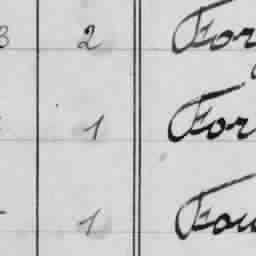 3 2 For
1 For
1 Fou